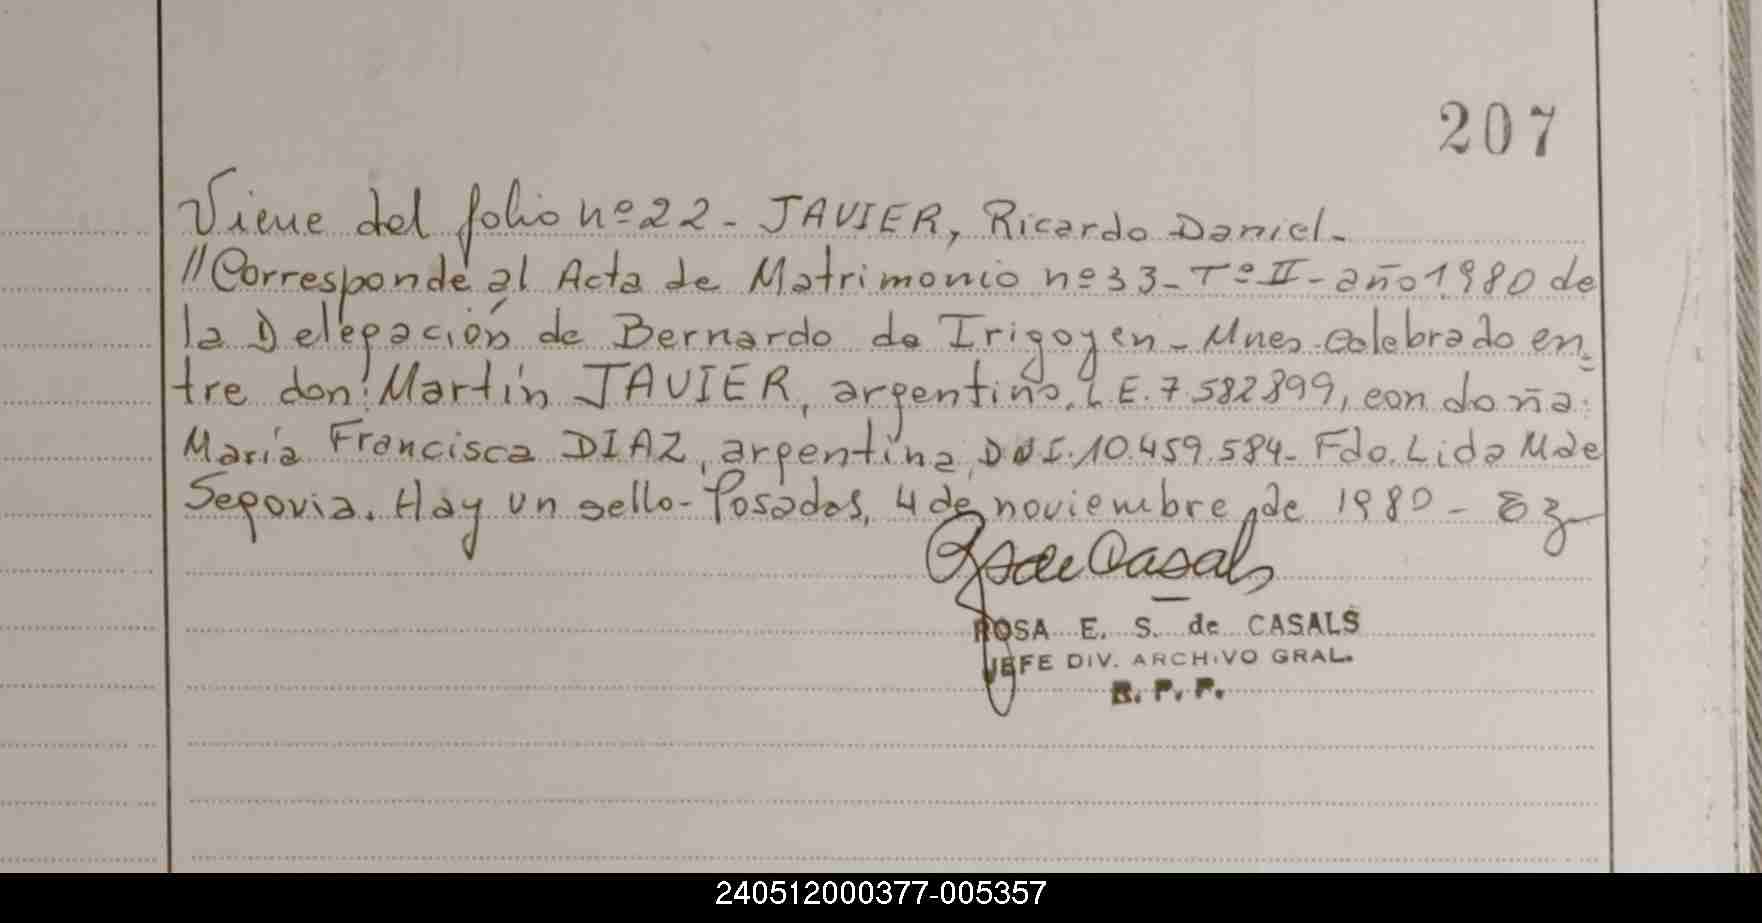 207
Viene del folio nº 22 - JAVIER, Ricardo Daniel.-
// Corresponde al Acta de Matrimonio nº 33 - Tº II - año 1980 de
la Delegación de Bernardo de Irigoyen - Mnes. celebrado en-
tre don: Martín JAVIER, argentino, L.E. 7.582.899, con doña:
María Francisca DIAZ, argentina, DNI. 10.459.584.- Fdo. Lida M de
Segovia. Hay un sello - Posadas, 4 de noviembre de 1980 -
de Casals
ROSA E. S. de CASALS
JEFE DIV. ARCHIVO GRAL.
R. P. P.
240512000377-005357